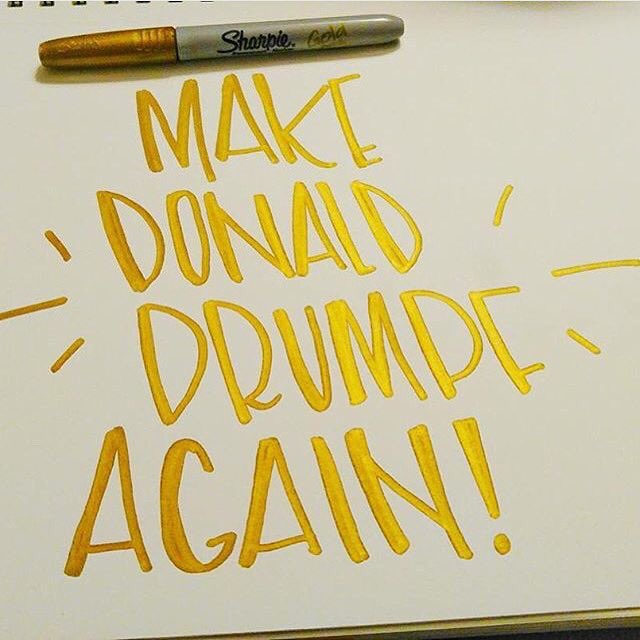 Sharpie. Gold
MAKE
DONALD
DRUMPE
AGAIN!